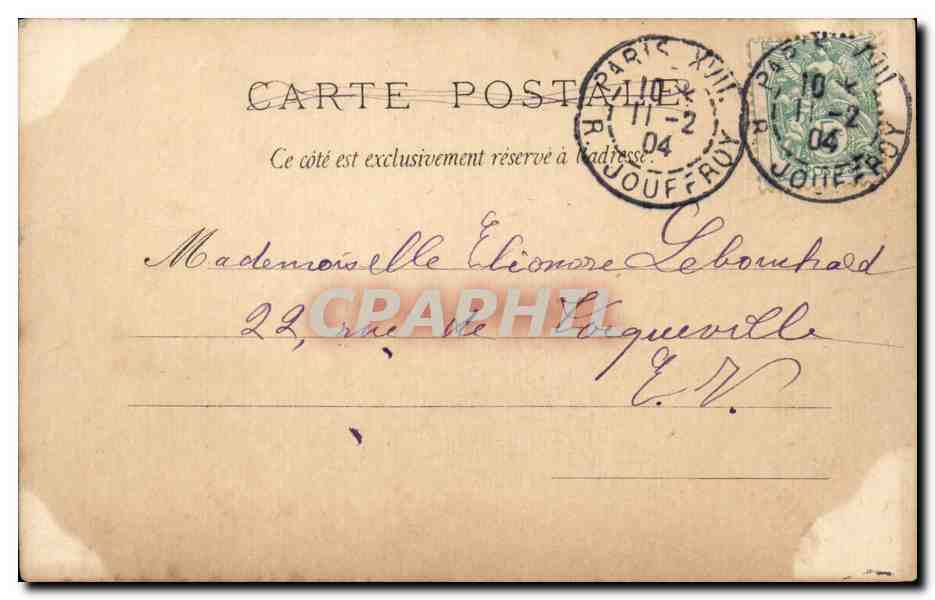 CARTE POSTALE
PARIS XVII
10 *
11 - 2
04
R. JOUFFROY
PARIS XVII
10 *
11 - 2
04
R. JOUFFROY
Ce côté est exclusivement réservé à l'adresse.
Mademoiselle Elionore Lebouchard
22, rue de Tocqueville
E. V.
CPAPHIL